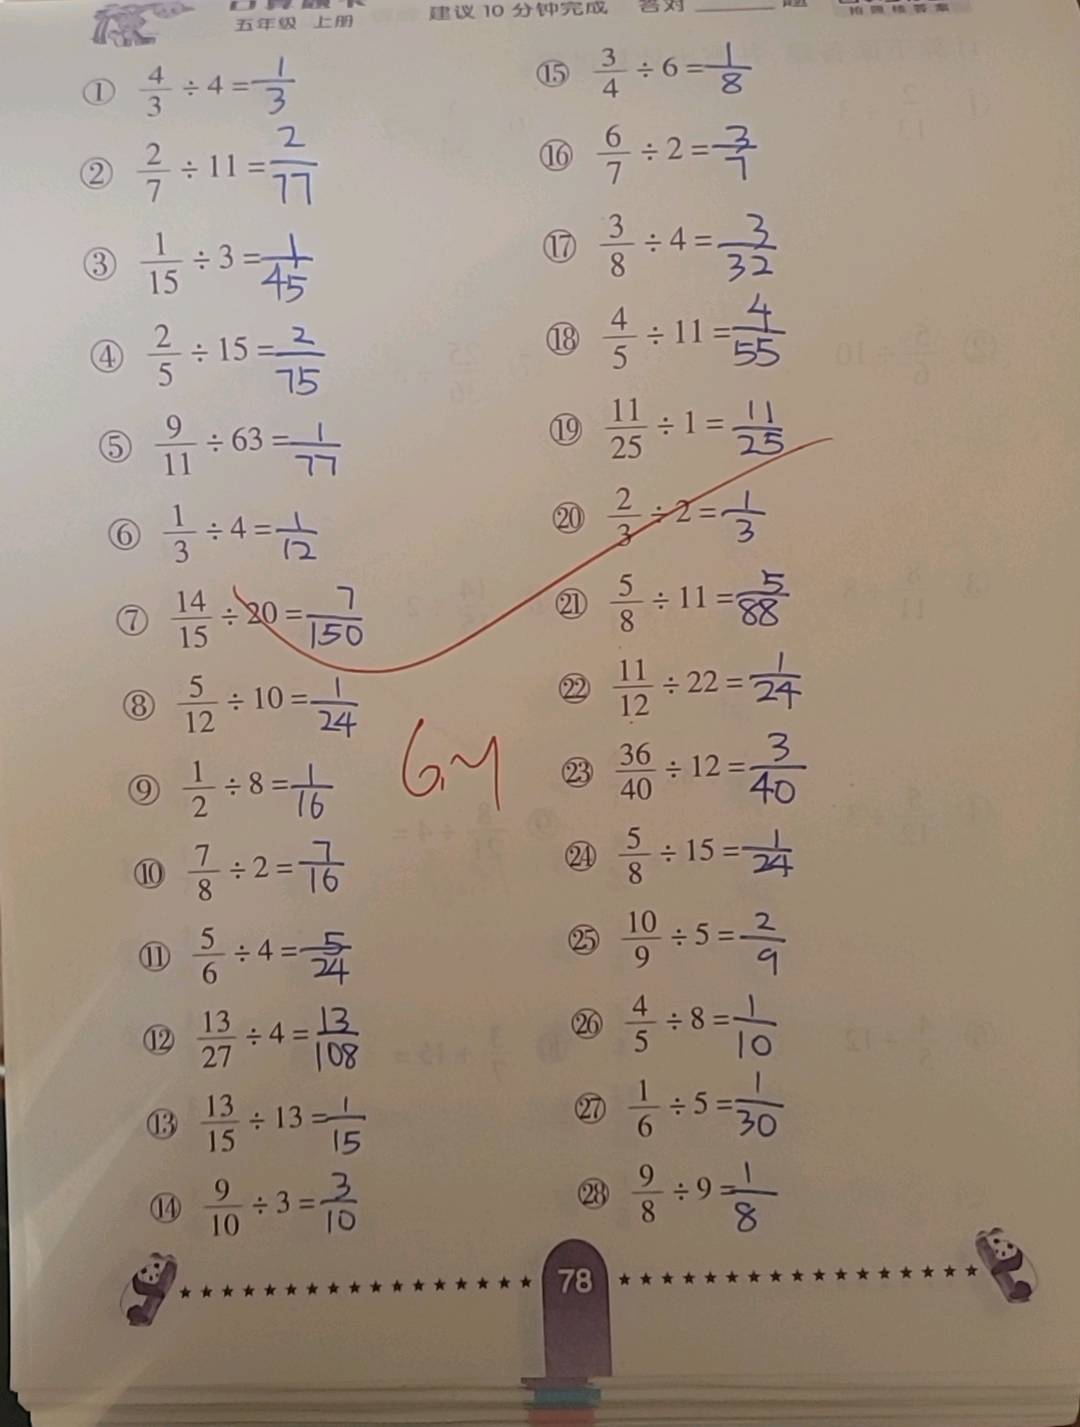 五年级 上册
建议10分钟完成 答对
① 4/3 ÷ 4 = 1/3
② 2/7 ÷ 11 = 2/77
③ 1/15 ÷ 3 = 1/45
④ 2/5 ÷ 15 = 2/75
⑤ 9/11 ÷ 63 = 1/77
⑥ 1/3 ÷ 4 = 1/12
⑦ 14/15 ÷ 20 = 7/150
⑧ 5/12 ÷ 10 = 1/24
⑨ 1/2 ÷ 8 = 1/16
⑩ 7/8 ÷ 2 = 7/16
⑪ 5/6 ÷ 4 = 5/24
⑫ 13/27 ÷ 4 = 13/108
⑬ 13/15 ÷ 13 = 1/15
⑭ 9/10 ÷ 3 = 3/10
⑮ 3/4 ÷ 6 = 1/8
⑯ 6/7 ÷ 2 = 3/7
⑰ 3/8 ÷ 4 = 3/32
⑱ 4/5 ÷ 11 = 4/55
⑲ 11/25 ÷ 1 = 11/25
⑳ 2/3 ÷ 2 = 1/3
㉑ 5/8 ÷ 11 = 5/88
㉒ 11/12 ÷ 22 = 1/24
㉓ 36/40 ÷ 12 = 3/40
㉔ 5/8 ÷ 15 = 1/24
㉕ 10/9 ÷ 5 = 2/9
㉖ 4/5 ÷ 8 = 1/10
㉗ 1/6 ÷ 5 = 1/30
㉘ 9/8 ÷ 9 = 1/8
78